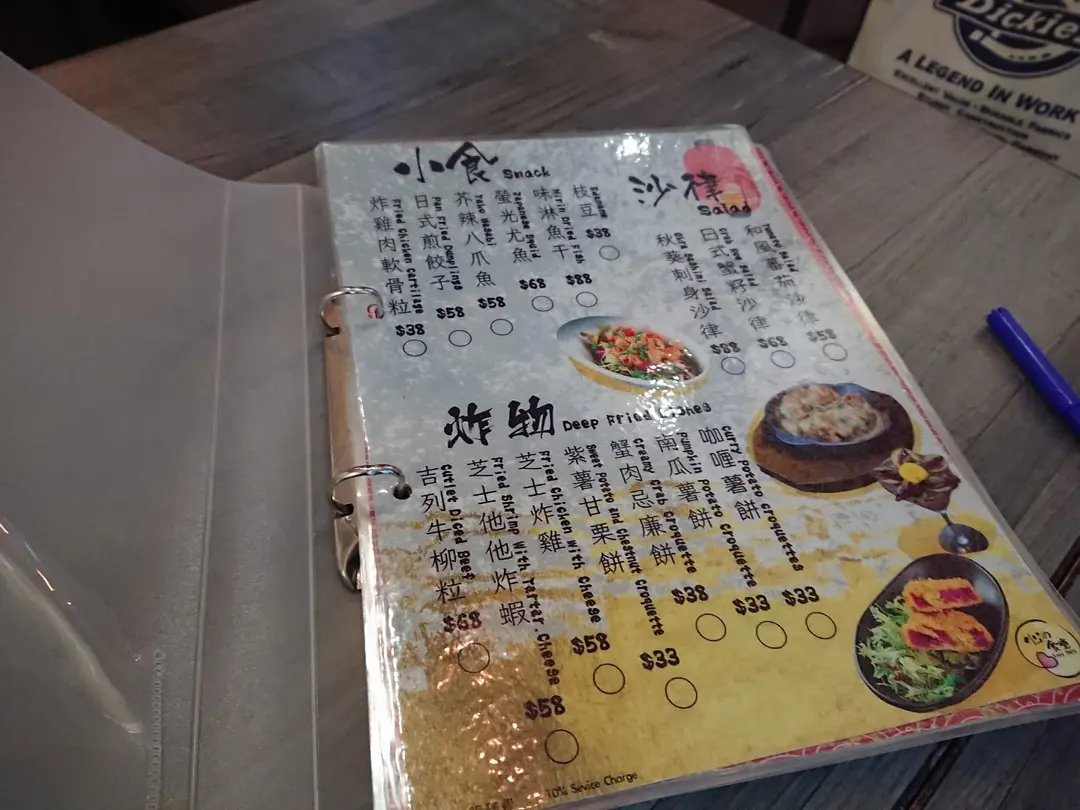 Dickies
A LEGEND IN WORK
小食 Snack
枝豆
Edamame
$38
味淋魚干
Mirin Dried Fish
$88
螢光尤魚
Japanese Squid
$68
芥辣八爪魚
Tako Wasabi
$58
日式煎餃子
Pan Fried Dumplings
$58
炸雞肉軟骨粒
Fried Chicken Cartilage
$38
沙律 Salad
和風蕃茄沙律
Tomato Salad
$58
日式蟹籽沙律
Crab Roe Salad
$68
秋葵刺身沙律
Okra Sashimi Salad
$88
炸物 Deep Fried Dishes
咖喱薯餅
Curry Potato Croquettes
$33
南瓜薯餅
Pumpkin Potato Croquette
$33
蟹肉忌廉餅
Creamy Crab Croquette
$38
紫薯甘栗餅
Sweet Potato and Chestnut Croquette
$33
芝士炸雞
Fried Chicken With Cheese
$58
芝士他他炸蝦
Fried Shrimp With Tartar.Cheese
$58
吉列牛柳粒
Cutlet Diced Beef
$68
10% Sevice Charge